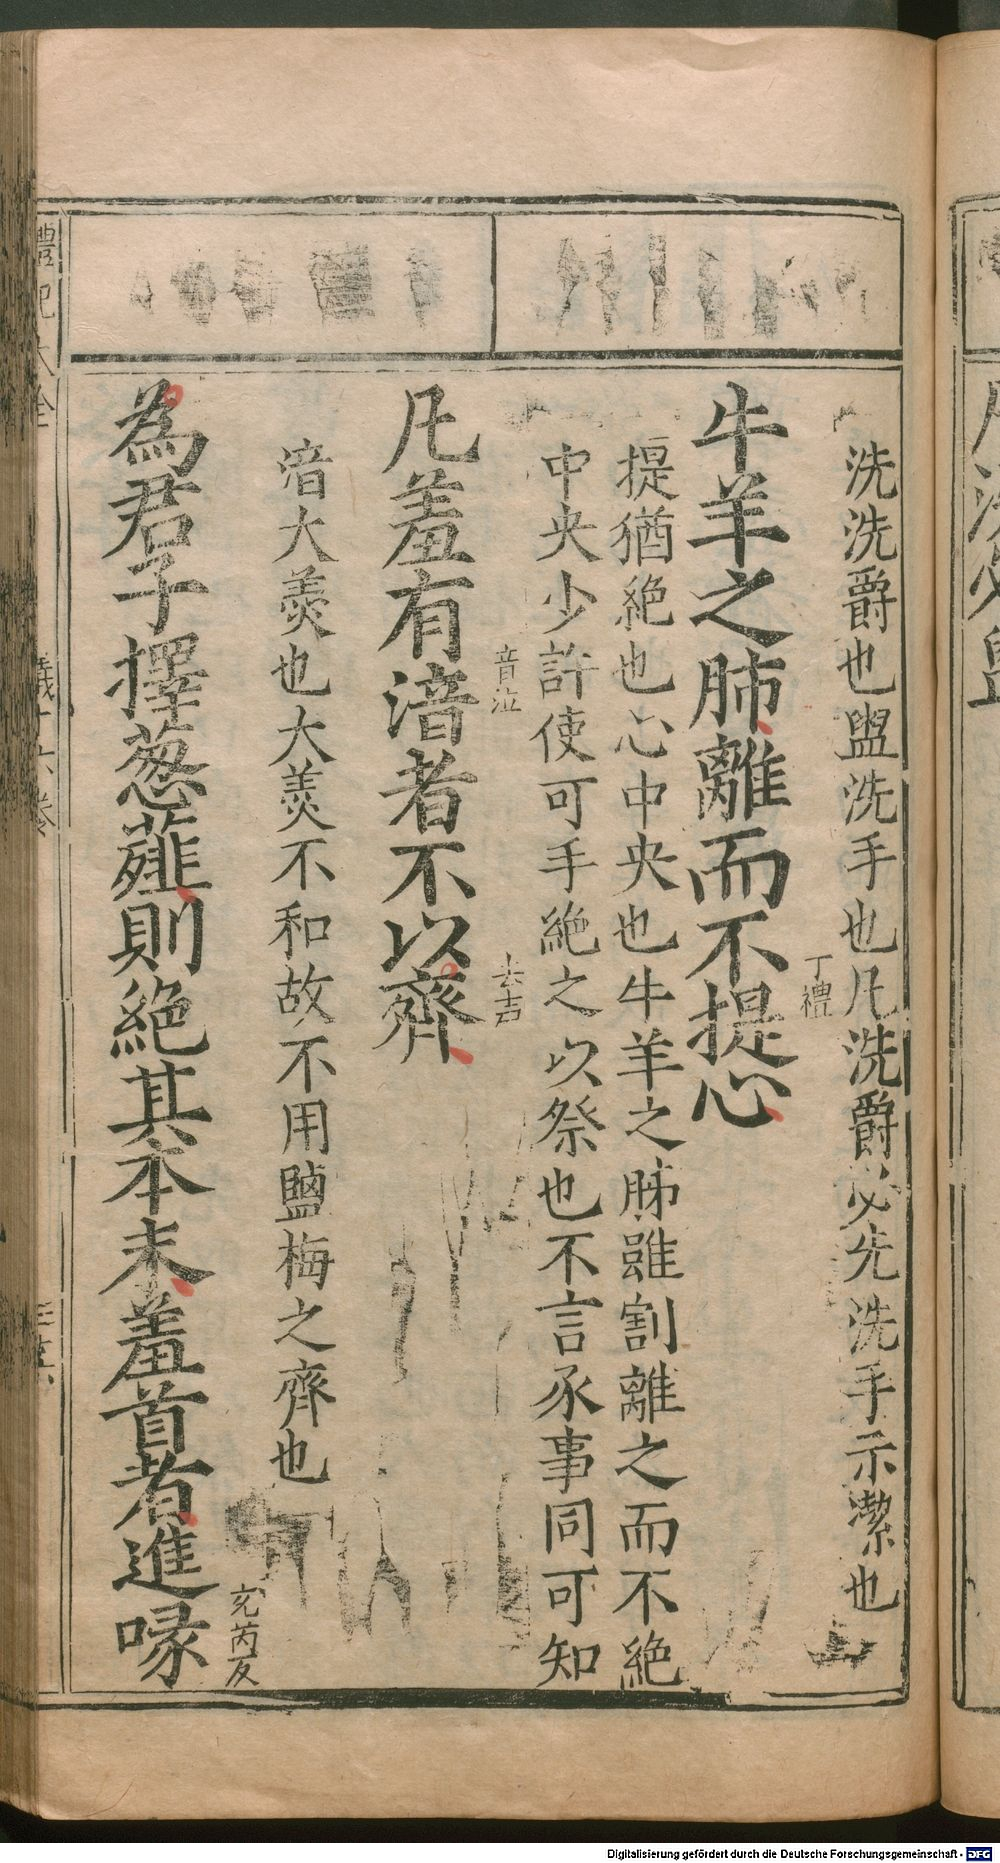 洗洗爵也盥洗手也凡洗爵必先洗手示潔也
丁禮
牛羊之肺離而不提心
提猶絶也心中央也牛羊之肺雖割離之而不絶
中央少許使可手絶之以祭也不言豕事同可知
音泣
去声
凡羞有湆者不以齊
湆大羹也大羹不和故不用鹽梅之齊也
充芮反
為君子擇葱薤則絶其本末羞首者進喙
禮記大全
Digitalisierung gefördert durch die Deutsche Forschungsgemeinschaft - DFG